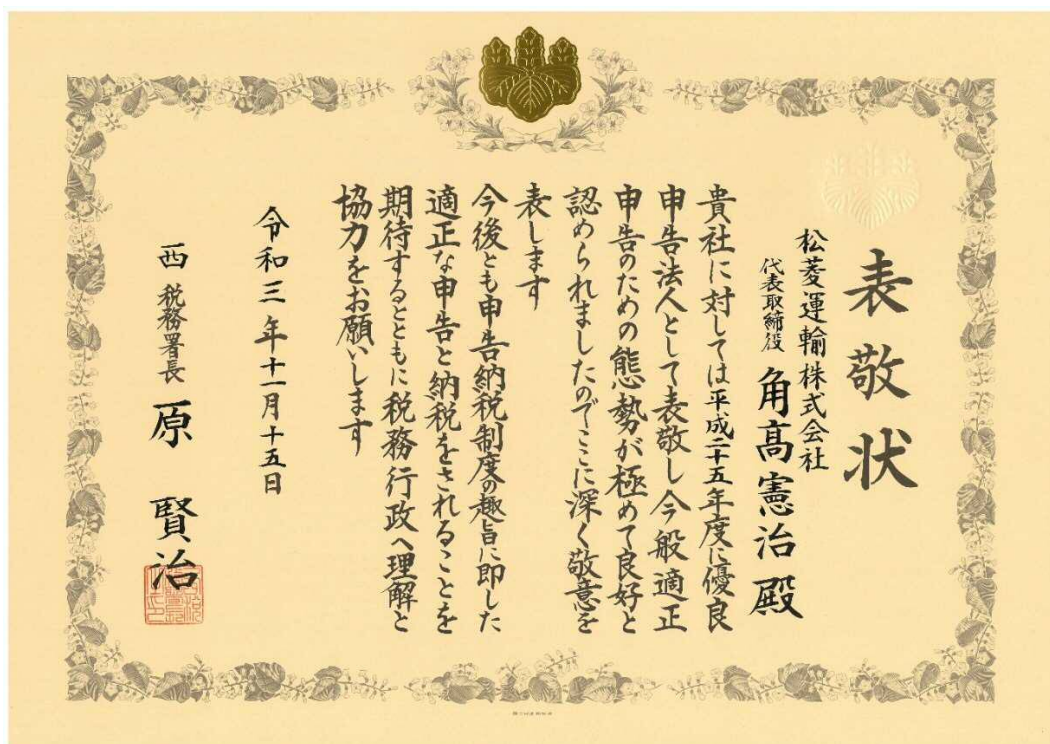 表敬状
松菱運輸株式会社
代表取締役 角髙憲治殿
貴社に対しては平成二十五年度に優良
申告法人として表敬し今般適正
申告のための態勢が極めて良好と
認められましたのでここに深く敬意を
表します
今後とも申告納税制度の趣旨に即した
適正な申告と納税をされることを
期待するとともに税務行政へ理解と
協力をお願いします
令和三年十一月十五日
西税務署長 原 賢治